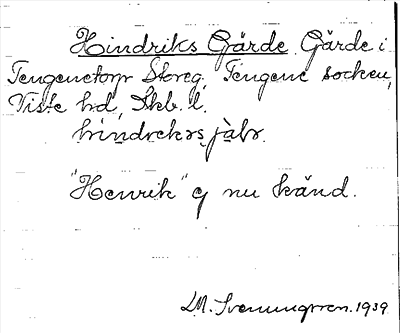 Hindriks Gärde Gärde i
Tengenetorp Storeg. Tengene socken,
Viste hd, Skb. l.
hìndrekrs jàlr.
"Henrik" ej nu känd.
J.M. Svenungsson. 1939